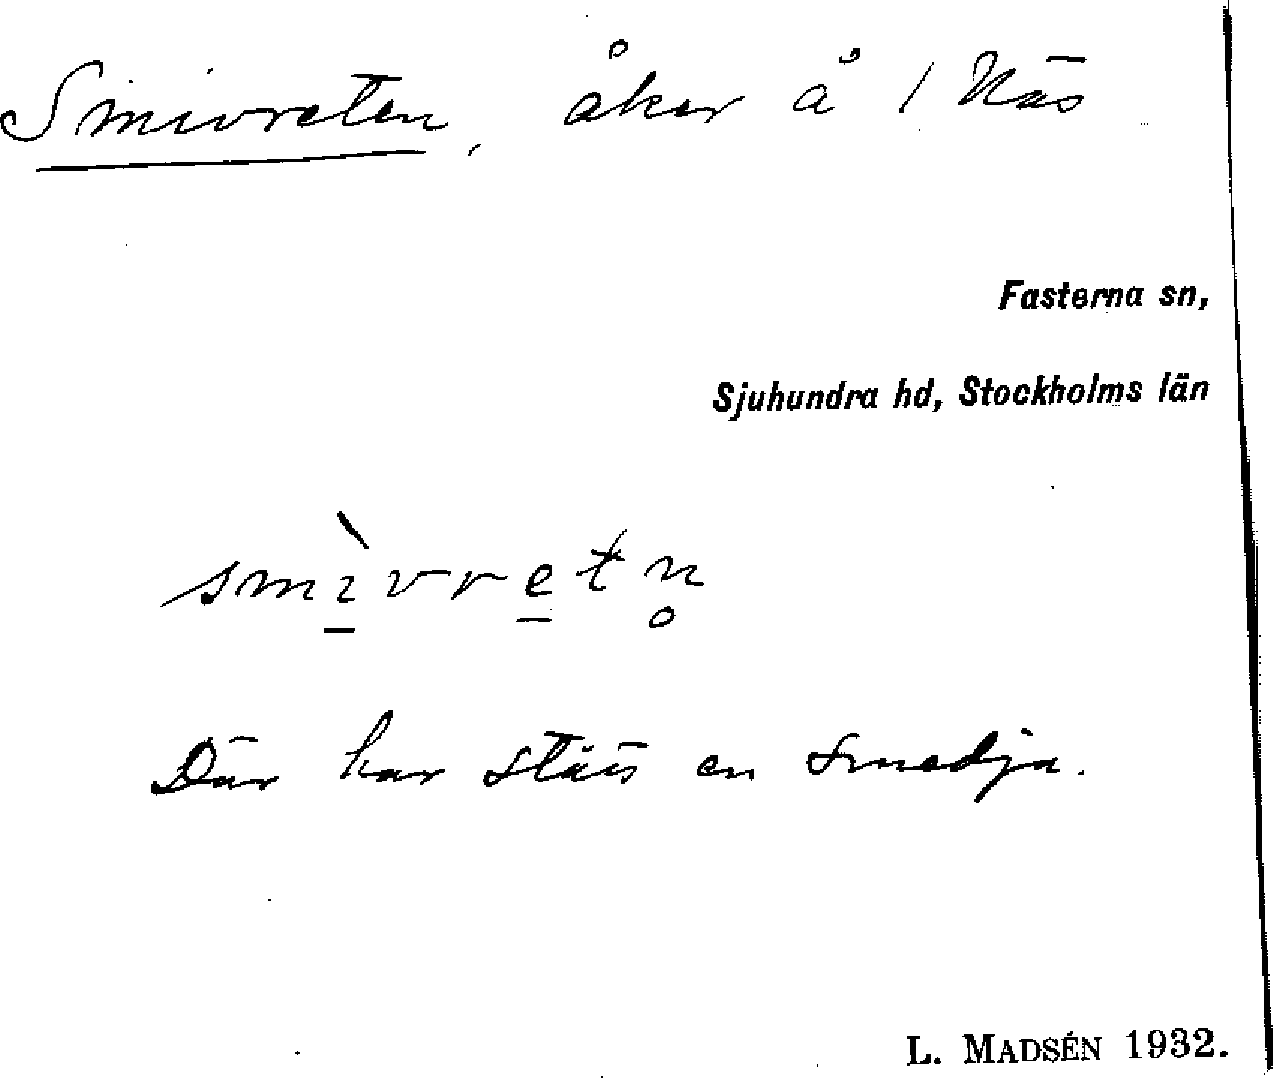 Smivreten, åker å 1 Näs
Fasterna sn,
Sjuhundra hd, Stockholms län
smı̱̀vre̱tn̥
Där har ståts en smedja.
L. MADSÉN 1932.